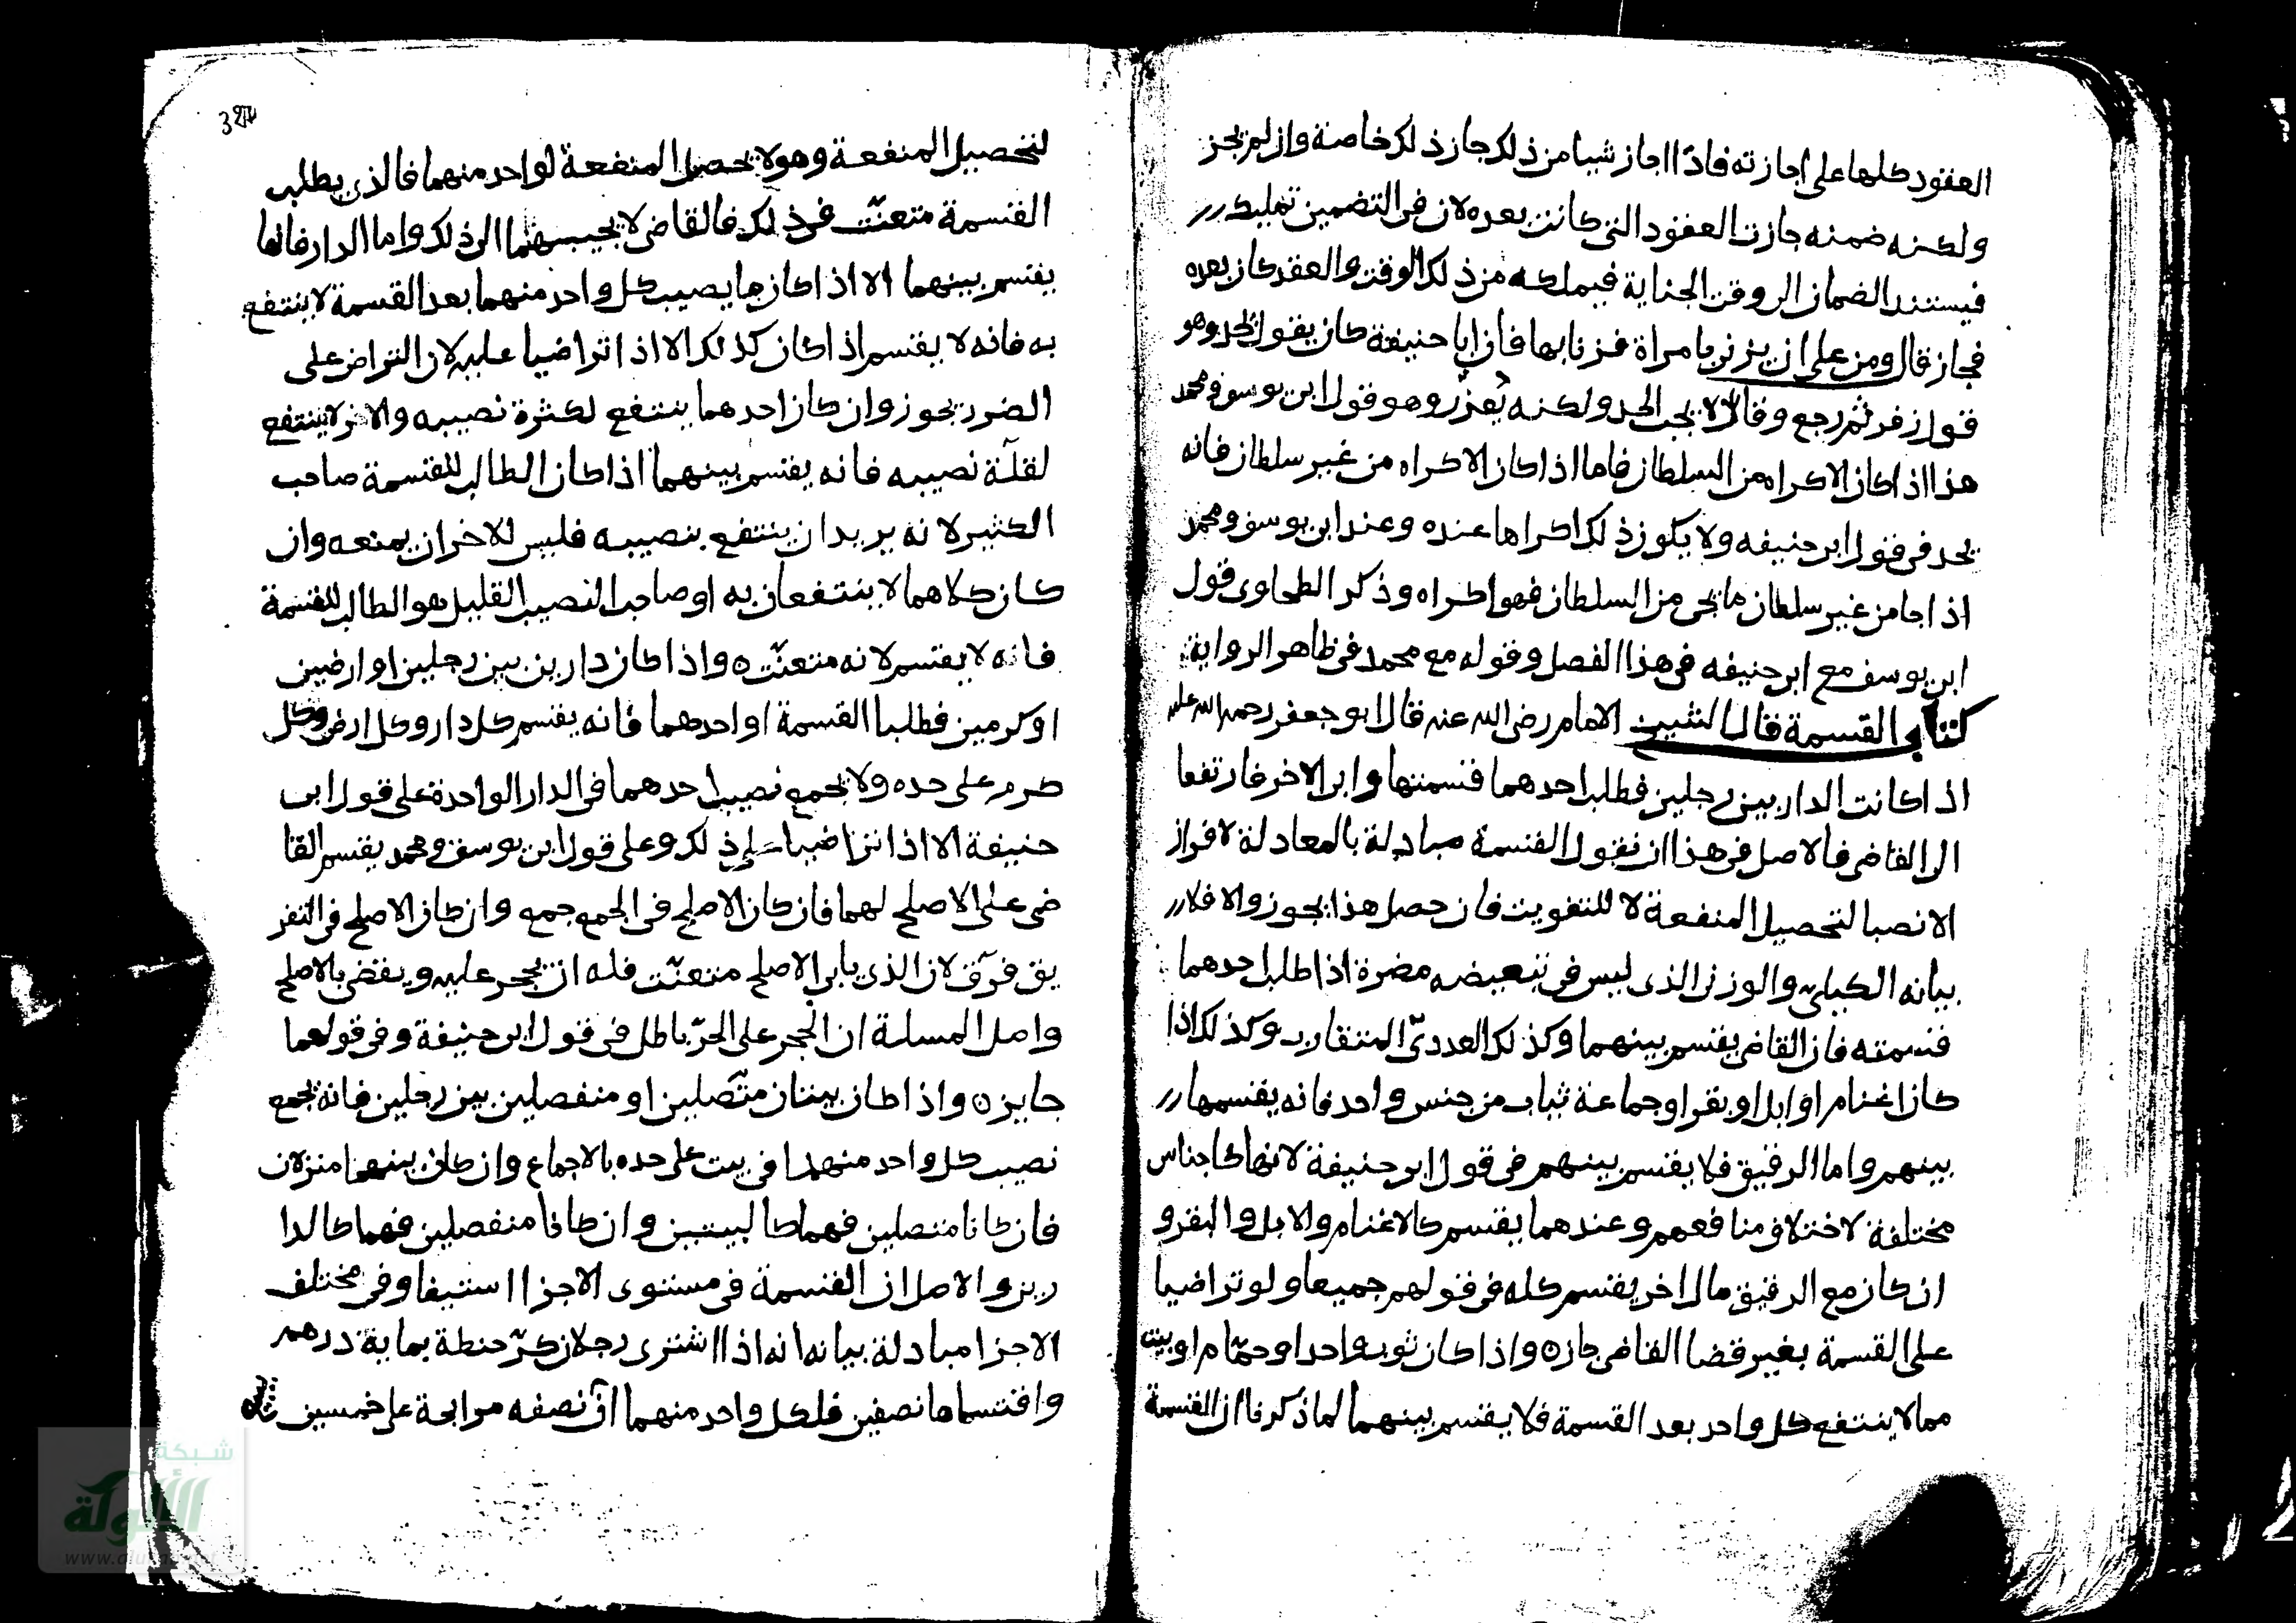 العقود كلها على اجازته فاذا اجاز شيا من ذلك جاز ذلك خاصة وان لم يجز
ولكنه ضمنه جازت العقود التي كانت بعده لان في التضمين تمليك
فيستند الضمان الى وقت الجناية فيملكه من ذلك الوقت والعقد كان بعده
فجاز قال ومن على ان يزني بامراة فزنا بها فان ابا حنيفة كان يقول يحد وهو
قول زفر ثم رجع وقال لا يجب الحد ولكنه يعزر وهو قول ابي يوسف ومحمد
هذا اذا كان الاكراه من السلطان فاما اذا كان الاكراه من غير سلطان فانه
يحد في قول ابي حنيفه ولا يكون ذلك اكراها عنده وعند ابي يوسف ومحمد
اذا جا من غير سلطان ما يجي من السلطان فهو اكراه وذكر الطحاوي قول
ابي يوسف مع ابي حنيفه في هذا الفصل وقوله مع محمد في ظاهر الرواية
كتاب القسمة قال الشيخ الامام رضى الله عنه قال ابو جعفر رحمة الله عليه
اذا كانت الدار بين رجلين فطلب احدهما قسمتها وابى الاخر فارتفعا
الى القاضي فالاصل في هذا ان نقول القسمة مبادلة بالمعادلة لافراز
الانصبا لتحصيل المنفعة لا للتفويت فان حصل هذا يجوز والا فلا
بيانه الكيلي والوزني الذي ليس في تبعيضه مضرة اذا طلب احدهما
قسمته فان القاضي يقسم بينهما وكذلك العددي المتقارب وكذلك اذا
كان اغنام او ابل او بقر او جماعة ثياب من جنس واحد فانه يقسمها
بينهم واما الرقيق فلا يقسم بينهم في قول ابي حنيفة لانها كاجناس
مختلفة لاختلاف منافعهم وعندهما يقسم كالاغنام والابل والبقر و
ان كان مع الرقيق مال اخر يقسم كله في قولهم جميعا ولو تراضيا
على القسمة بغير قضا القاضي جاز ه واذا كان ثوب واحد او حمام او بيت
مما لا ينتفع كل واحد بعد القسمة فلا يقسم بينهما لما ذكرنا ان القسمة
لتحصيل المنفعة وهو لا يحصل المنفعة لواحد منهما فالذي يطلب
القسمة متعنت في ذلك فالقاضي لا يجيبهما الى ذلك واما الدار فانها
يقسم بينهما الا اذا كان ما يصيب كل واحد منهما بعد القسمة لا ينتفع
به فانه لا يقسم اذا كان كذلك الا اذا تراضيا عليه لان التراضي على
الضرر يجوز وان كان احدهما ينتفع لكثرة نصيبه والاخر لا ينتفع
لقلة نصيبه فانه يقسم بينهما اذا كان الطالب للقسمة صاحب
الكثير لانه يريد ان ينتفع بنصيبه فليس للاخر ان يمنعه وان
كان كلاهما لا ينتفعان به او صاحب النصيب القليل هو الطالب للقسمة
فانه لا يقسم لانه متعنت ه واذا كان دارين بين رجلين او ارضين
او كرمين فطلبا القسمة او احدهما فانه يقسم كل دار وكل ارض وكل
كرم على حده ولا يجمع نصيب احدهما في الدار الواحدة على قول ابي
حنيفة الا اذا تراضيا على ذلك وعلى قول ابي يوسف ومحمد يقسم القا
ضي على الاصلح لهما فان كان الاصلح في الجمع جمع وان كان الاصلح في التفر
يق فرق لان الذي يابى الاصلح متعنت فله ان يحجر عليه ويقضي بالاصلح
واصل المسلة ان الحجر على الحر باطل في قول ابي حنيفة وفي قولهما
جايز ه واذا كان بيتان متصلين او منفصلين بين رجلين فانه يجمع
نصيب كل واحد منهما في بيت على حده بالاجماع وان كان بينهما منزلان
فان كانا متصلين فهما كالبيتين وان كانا منفصلين فهما كالدا
رين والاصل ان القسمة في مستوى الاجزا استيفا وفي مختلف
الاجزا مبادلة بيانه انه اذا اشترى رجلان كر حنطة بماية درهم
واقتسماها نصفين فلكل واحد منهما ان نصفه مرابحة على خمسين
شبكة
الألوكة